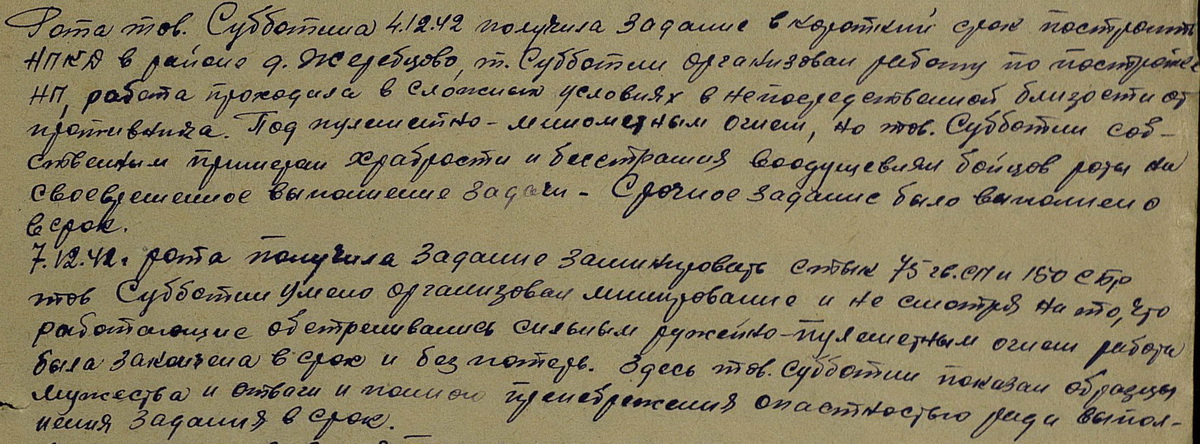 Рота тов. Субботина 4.12.42 получила задание в короткий срок построить
НПКД в районе д. Жеребцово, т. Субботин организовал работу по постройке
НП, работа проходила в сложных условиях в непосредственной близости от
противника. Под пулеметно-минометным огнем, но тов. Субботин соб-
ственным примером храбрости и бесстрашия воодушевлял бойцов роты на
своевременное выполнение задачи - Срочное задание было выполнено
в срок.
7.12.42г рота получила задание заминировать стык 75 гв.сп и 150 сбр
тов Субботин умело организовал минирование и не смотря на то, что
работающие обстреливались сильным ружейно-пулеметным огнем работа
была закончена в срок и без потерь. Здесь тов. Субботин показал образцы
мужества и отваги и полного пренебрежения опастностью ради выпол-
нения задания в срок.